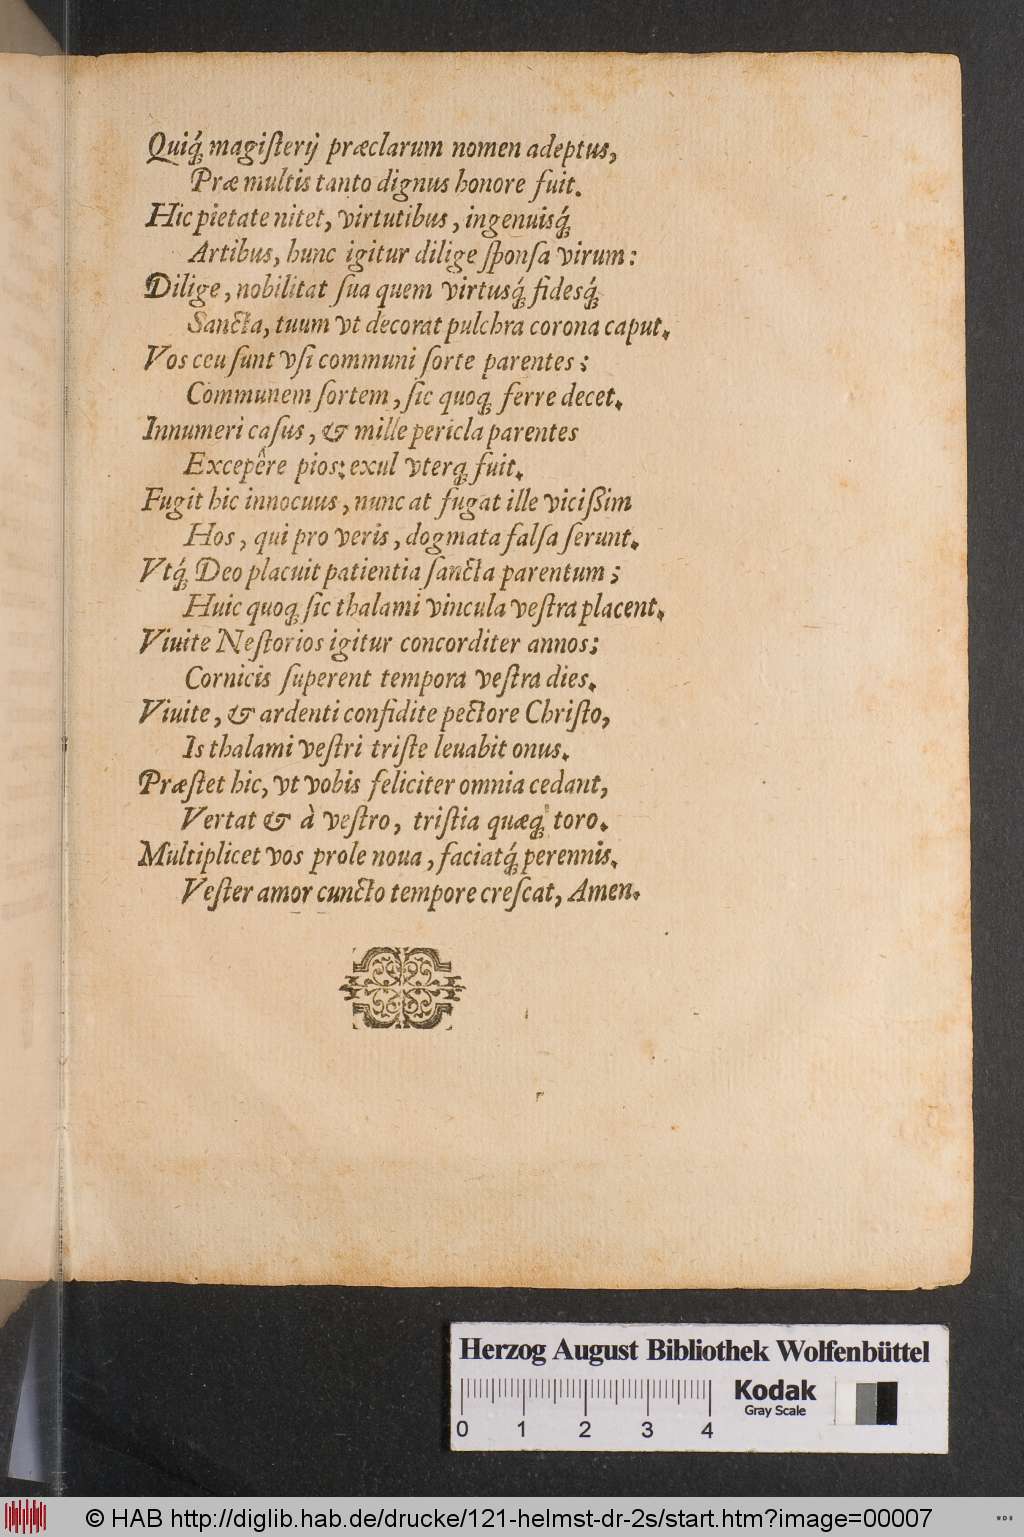 Quiq́; magiſterij præclarum nomen adeptus,
Præ multis tanto dignus honore fuit.
Hic pietate nitet, virtutibus, ingenuisq́;
Artibus, hunc igitur dilige ſponſa virum:
Dilige, nobilitat ſua quem virtusq́; fidesq́;
Sancta, tuum vt decorat pulchra corona caput.
Vos ceu ſunt vſi communi ſorte parentes;
Communem ſortem, ſic quoq; ferre decet.
Innumeri caſus, & mille pericla parentes
Excepêre pios: exul vterq; fuit.
Fugit hic innocuus, nunc at fugat ille viciſsim
Hos, qui pro veris, dogmata falſa ſerunt.
Vtq́; Deo placuit patientia ſancta parentum;
Huic quoq; ſic thalami vincula veſtra placent.
Viuite Neſtorios igitur concorditer annos;
Cornicis ſuperent tempora veſtra dies.
Viuite, & ardenti confidite pectore Chriſto,
Is thalami veſtri triſte leuabit onus.
Præſtet hic, vt vobis feliciter omnia cedant,
Vertat & à veſtro, triſtia quæq; toro.
Multiplicet vos prole noua, faciatq́; perennis.
Veſter amor cuncto tempore creſcat, Amen.
Herzog August Bibliothek Wolfenbüttel
Kodak
Gray Scale
0 1 2 3 4
© HAB http://diglib.hab.de/drucke/121-helmst-dr-2s/start.htm?image=00007